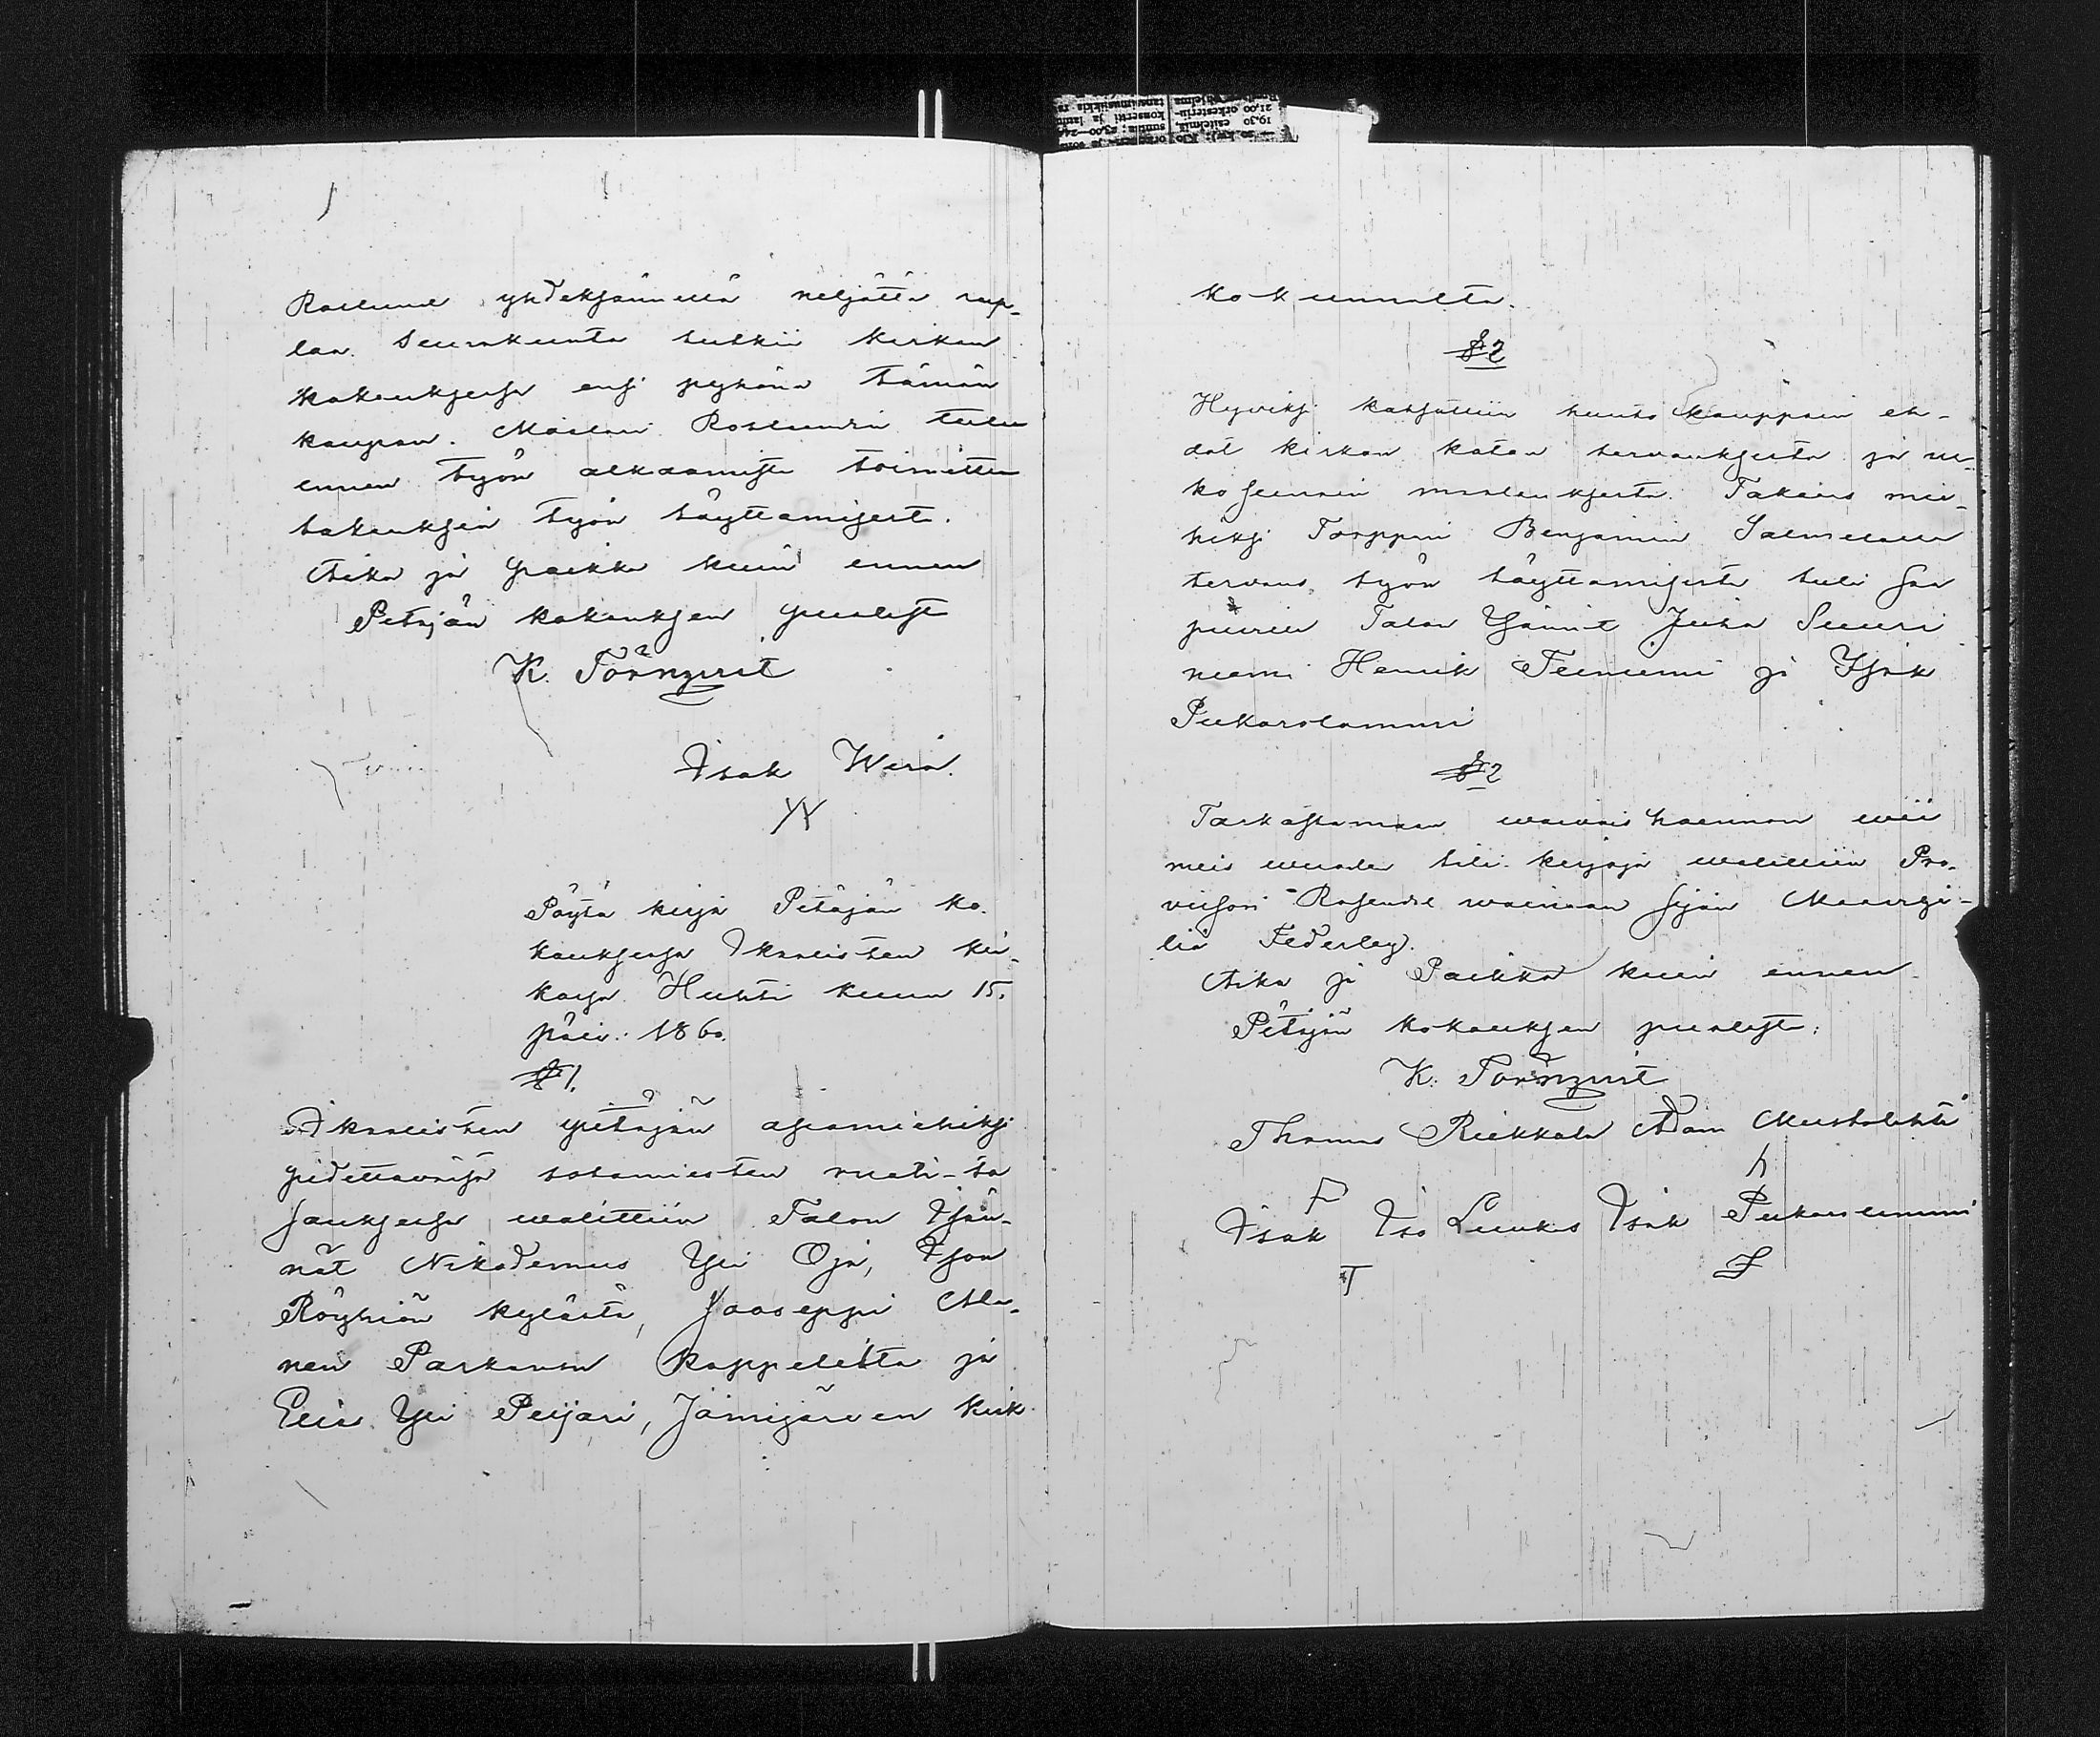 Roslund yhdeksännellä neljättä rup-
lan. Seurakunta tutkii kirkon
kokouksesa ensi pyhänä tämän
kaupan. Mäalari Roslundin tulee
ennen työn alkamista toimittaa
takauksen työn täyttämisest.
Aika ja paikka kuin ennen
Pitäjän kokouksen puolest
K. Törnqvist
Isak Werä.
Pöytä kirja Pitäjän ko-
kouksesa Ikalisten kir-
kosa Huhti kuun 15.
päiv: 1860.
§ 1.
Ikalisten pitäjän asiamiehiksi
pidettäväsä sotamiesten ruotu-ta
sauksesa valittiin Talon Isän-
nät Nikodemus Yli Oja, Ison
Röyhiön kylästä, Jooseppi Ala-
nen Parkanon kappelista ja
Elis Yli Peijari, Jämijärven kirk
kokunnalta.
§ 2
Hyviksi katsottiin huuto kauppain eh-
dot kirkon katon tervauksesta ja ul-
ko seinäin maalauksesta. Takaus mie-
hiksi Torppari Benjamin Salmelan
tervaus työn täyttämisestä tuli saa
puurin Talon Isännät Juha Suuri
niemi Henrik Teinilmi ja Isak
Pukaralammi
§ 2
Tarkastamaan vaivais hoinnon vii
meis vuoden tili kirjoja valittiin Pro-
viisori Rosendal vainaan sijan Maangi-
liä Federley.
Aika ja Paikka kuin ennen
Pitäjän kokouksen puolest:
K. Törnqvist
Thomas Riikkala Adam Mustalahti
Isak Iso Luukas Isak Pukaralammi
T